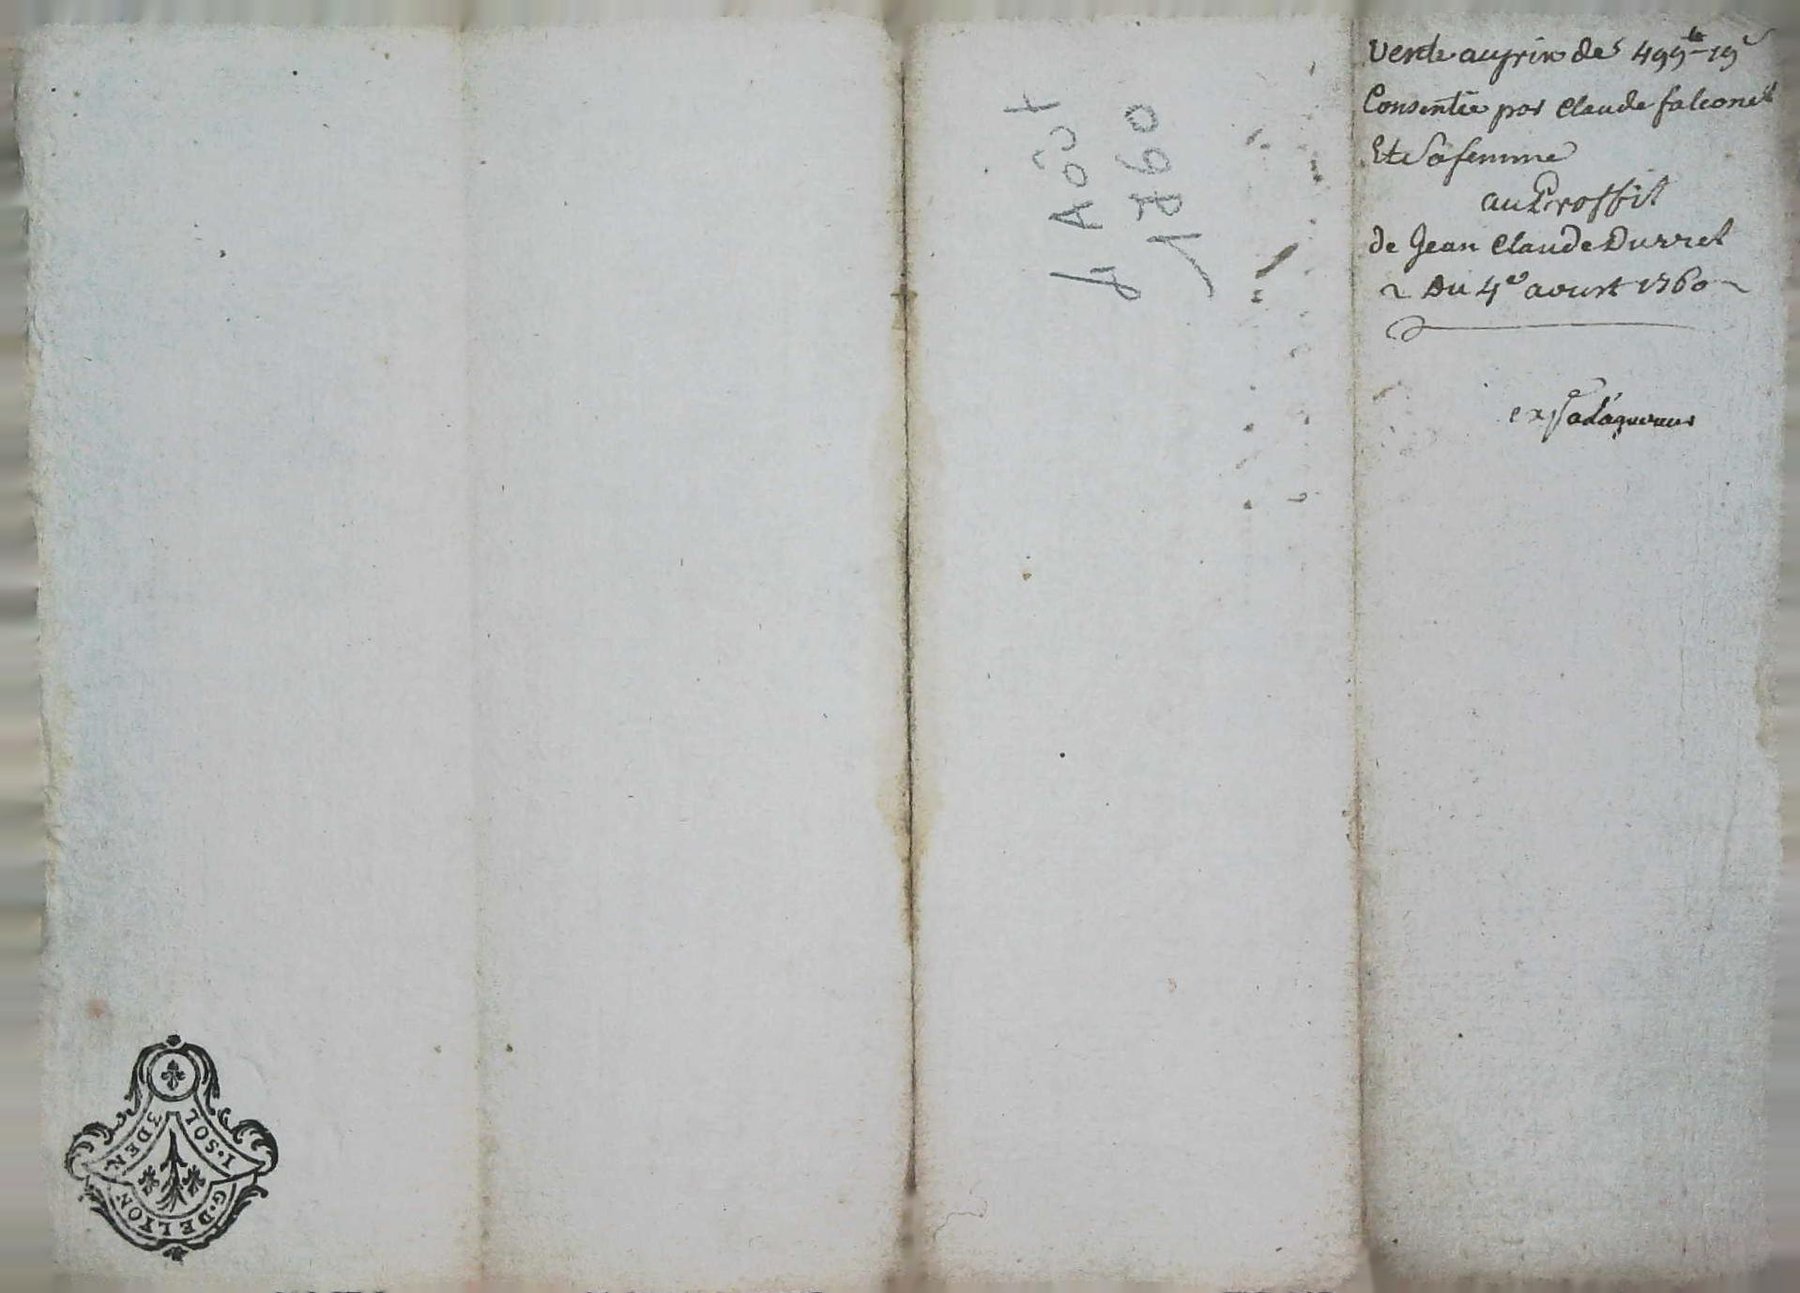 Vente au prix de 499lt 19s
Consentie par Claude falconet
Et sa femme
au Proffit
de Jean Claude Durret
Du 4e aoust 1760
exp
4 Aôut
1760
1·SOL
3DEN
G·DELYON